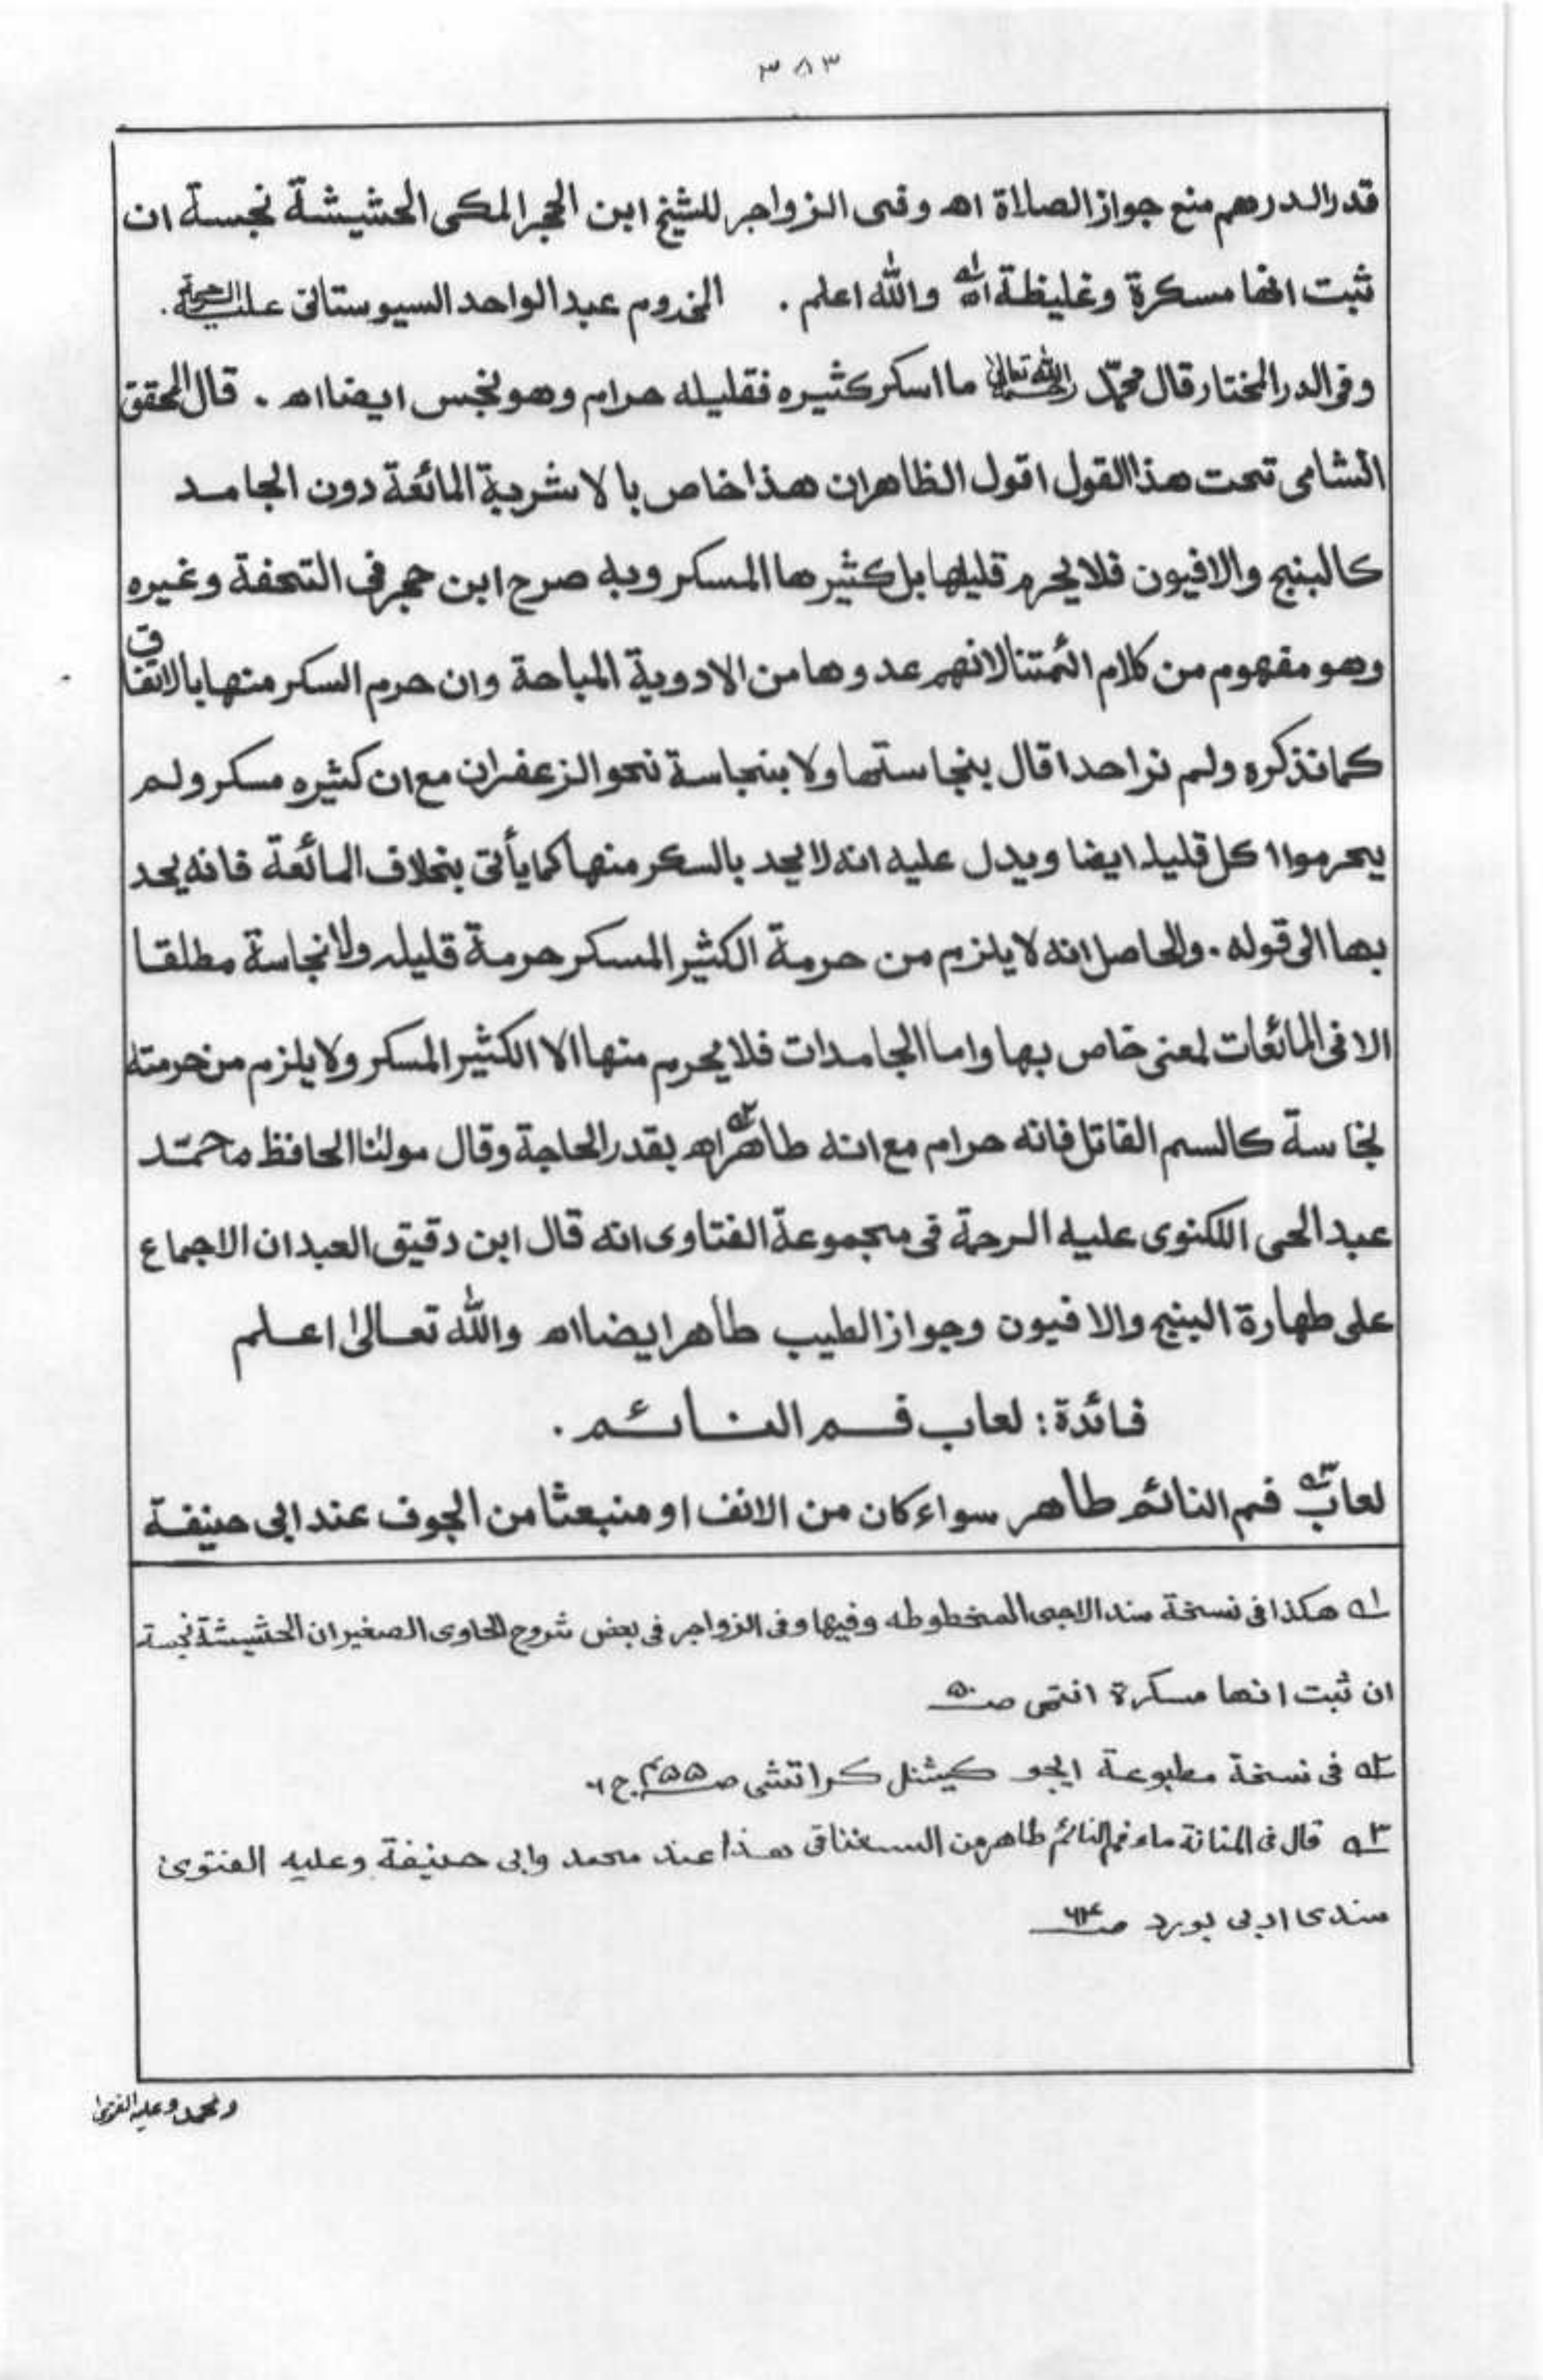 ٣٨٣
قدر الدرهم منع جواز الصلاة اه وفى الزواجر للشيخ ابن الحجر المكى الحشيشة نجسة ان
ثبت انها مسكرة وغليظة اه والله اعلم . المخدوم عبد الواحد السيوستانى عليه الرحمة .
وفى الدر المختار قال محمّد رحمه الله تعالىٰ ما اسكر كثيره فقليله حرام وهو نجس ايضا اه . قال المحقق
الشامى تحت هذا القول اقول الظاهر ان هذا خاص بالاشربة المائعة دون الجامد
كالبنج والافيون فلا يحرم قليلها بل كثيرها المسكر وبه صرح ابن حجر فى التحفة وغيره
وهو مفهوم من كلام ائمتنا لانهم عدوها من الادوية المباحة وان حرم السكر منها بالاتفاق
كما نذكره ولم نر احدا قال بنجاستها ولا بنجاسة نحو الزعفران مع ان كثيره مسكر ولم
يحرموا اكل قليله ايضا ويدل عليه انه لا يحد بالسكر منها كما يأتى بخلاف المائعة فانه يحد
بها الى قوله . والحاصل انه لا يلزم من حرمة الكثير المسكر حرمة قليله ولا نجاسة مطلقا
الا فى المائعات لمعنى خاص بها واما الجامدات فلا يحرم منها الا الكثير المسكر ولا يلزم من حرمته
نجاسة كالسم القاتل فانه حرام مع انه طاهر اه٢ بقدر الحاجة وقال مولٰنا الحافظ محمّد
عبد الحى اللكنوى عليه الرحمة فى مجموعة الفتاوى انه قال ابن دقيق العبد ان الاجماع
على طهارة البنج والافيون وجواز الطيب طاهر ايضا اه والله تعالىٰ اعلم
فائدة : لعاب فم النائم .
لعاب٣ فم النائم طاهر سواء كان من الانف او منبعثا من الجوف عند ابى حنيفة
١ه هكذا فى نسخة سند الاجى المخطوطه وفيها وفى الزواجر فى بعض شروح الحاوى الصغير ان الحشيشة نجسة
ان ثبت انها مسكرة انتهى صـ٥٠
٢ه فى نسخة مطبوعة ايجو كيشنل كراتشى صـ٤٥٥ ج ٦
٣ه قال فى المنانة ماء فم النائم طاهر من السغناقى هذا عند محمد وابى حنيفة وعليه الفتوىٰ
سندى ادبى بورد صـ٦٤
ومحمد وعليه الفتوىٰ